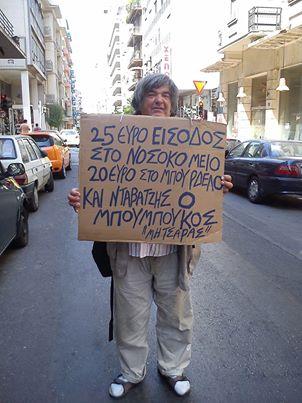 25 ΕΥΡΟ ΕΙΣΟΔΟΣ
ΣΤΟ ΝΟΣΟΚΟΜΕΙΟ
20 ΕΥΡΟ ΣΤΟ ΜΠΟΥΡΔΕΛΟ
ΚΑΙ ΝΤΑΒΑΤΖΗΣ Ο
ΜΠΟΥΜΠΟΥΚΟΣ
"ΜΗΤΣΑΡΑΣ"